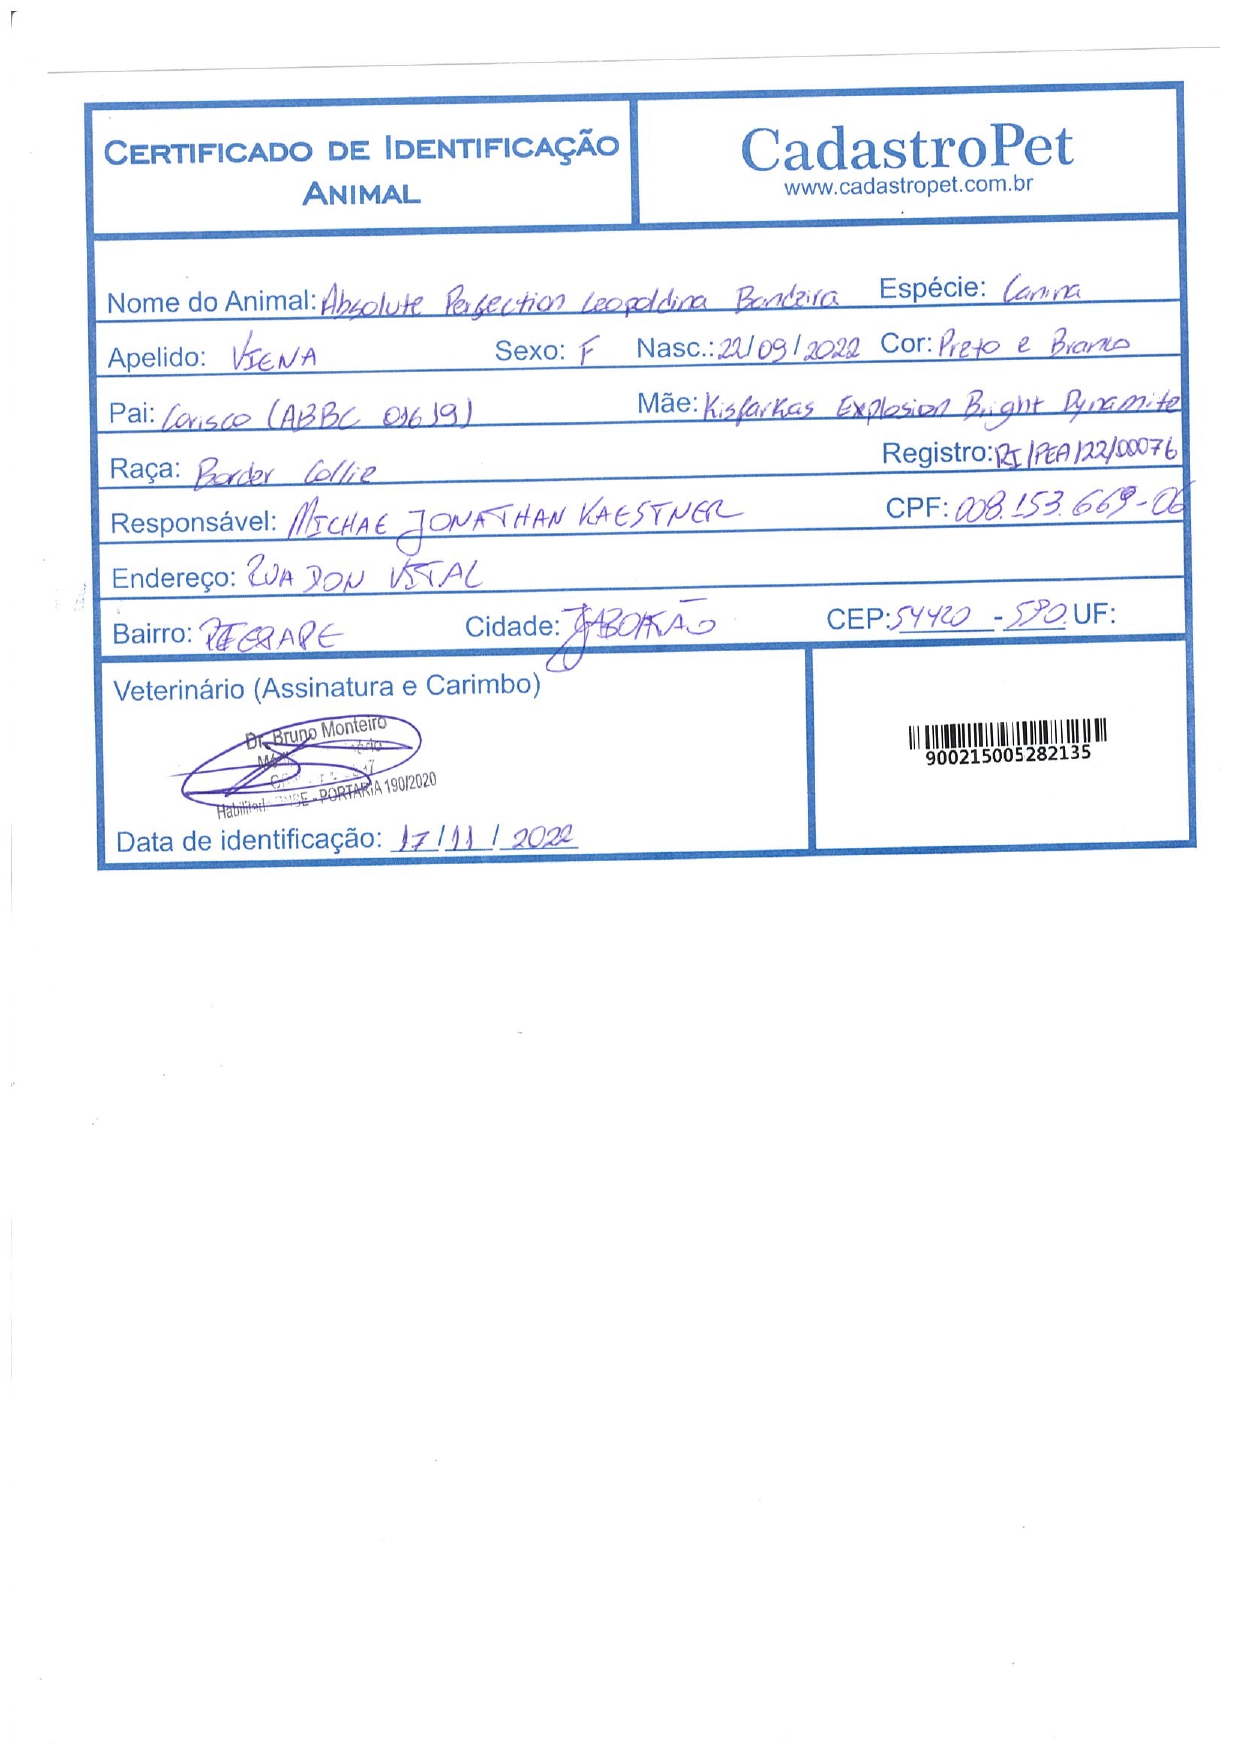 CERTIFICADO DE IDENTIFICAÇÃO
ANIMAL
CadastroPet
www.cadastropet.com.br
Nome do Animal: Absolute Perfection Leopoldina Bandeira Espécie: Canina
Apelido: VIENA Sexo: F Nasc.: 22/09/2022 Cor: Preto e Branco
Pai: Corisco (ABBC 01619) Mãe: Kisfarkas Explosion Bright Dynamite
Raça: Border Collie Registro: RI/PEA/22/00076
Responsável: MICHAE JONATHAN KAESTNER CPF: 008.153.669-06
Endereço: RUA DON VITAL
Bairro: Cidade: JABOATÃO CEP: 54420-590 UF:
Veterinário (Assinatura e Carimbo)
Dr. Bruno Monteiro
PORTARIA 190/2020
900215005282135
Data de identificação: 17/11/2022